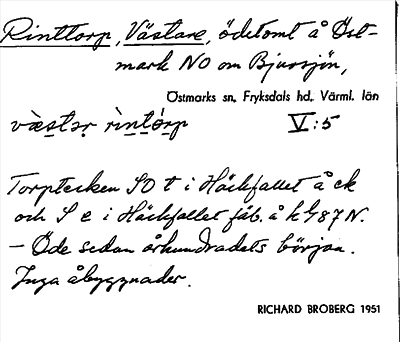 Rinttorp, Västare, ödetomt å Öst-
mark NO om Bjursjön,
Östmarks sn, Fryksdals hd, Värml. län
væ̀stər rìntórp V:5
Torptecken SO t i Häckfallet å ek
och S e i Häckfallet fäb. å k 487 N.
– Öde sedan århundradets början.
Inga åbyggnader.
RICHARD BROBERG 1951